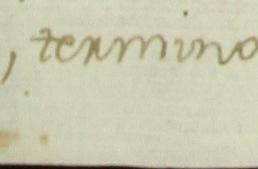 , termino